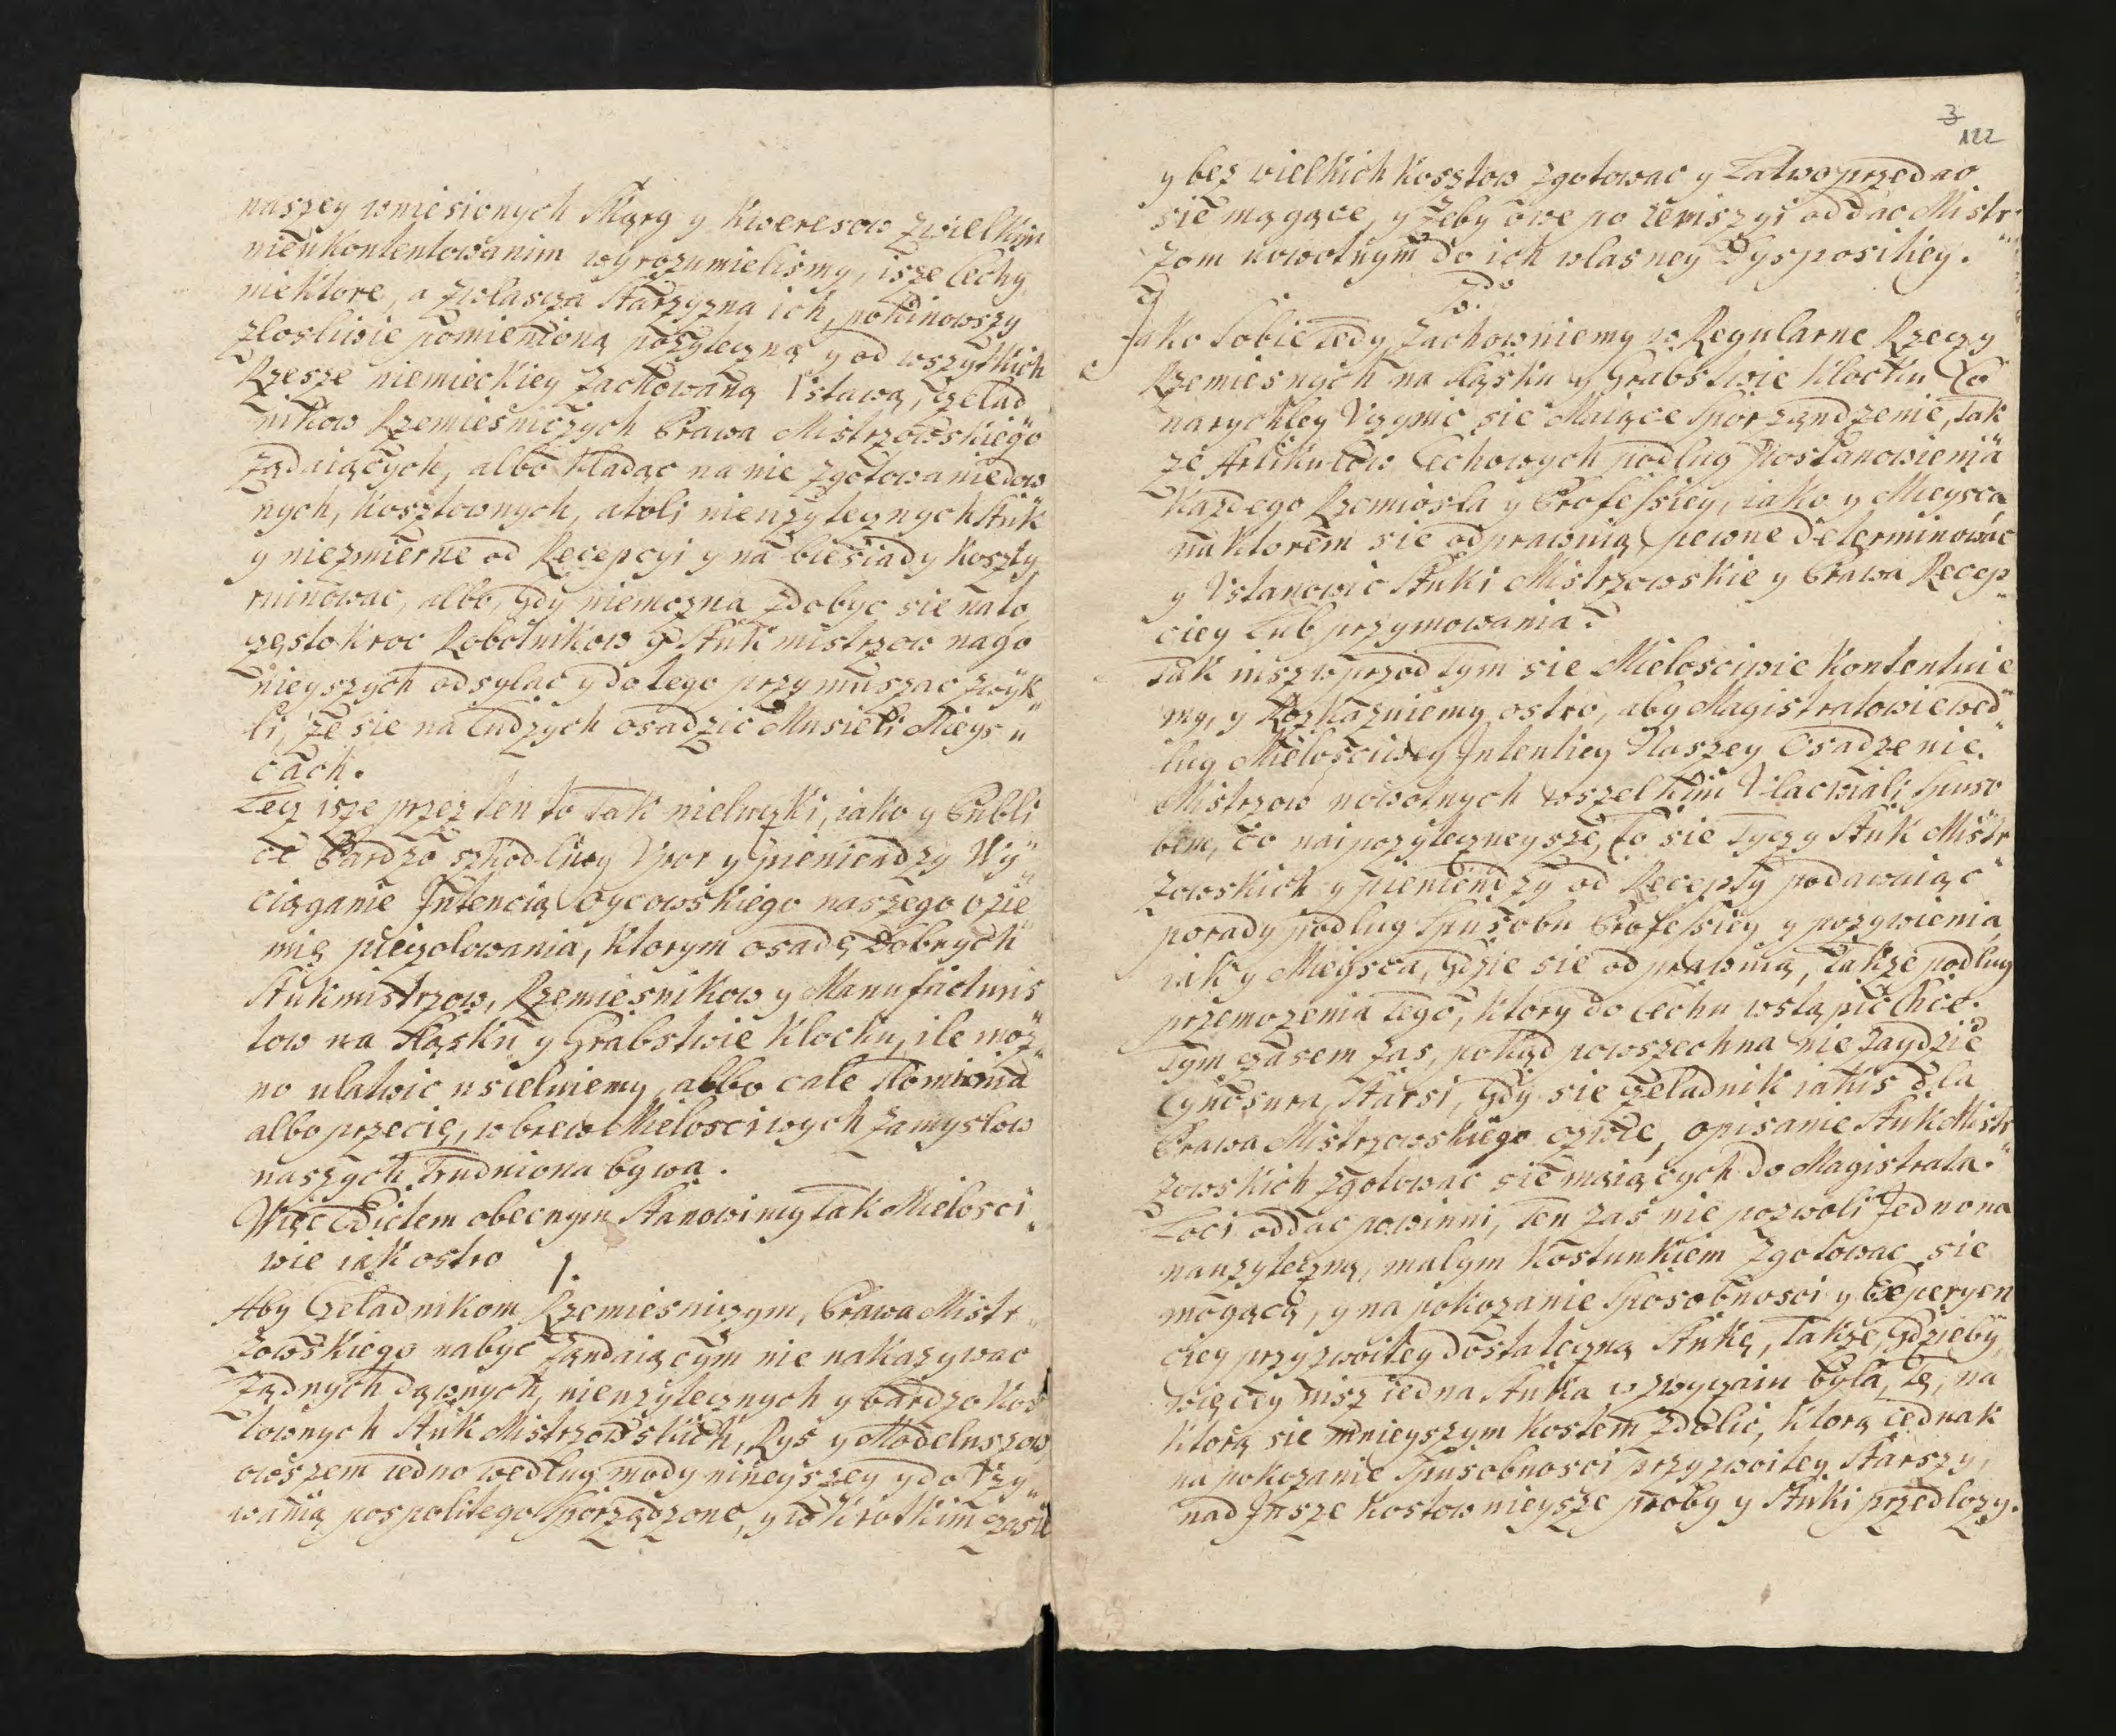 naszey wniesionych Skarg y Kwerelow z wielkim
nieukontentowanim wyrozumielismy, isze Cechy
niektore, a zwlascza Starszyzna ich, pominowszy
zlosliwie pomienioną pozyteczną y od wszytkich
Rzesze niemieckiey zachowaną Ustawą, Czelad
nikow Rzemiesniczych Prawa Mistrzowskiego
ządaiących, albo kladąc na nie zgotowanie dow
nych, kosztownych, atoli nieuzytecznych Stuk
y niezmierne od Recepcyi y na biesiady koszty
ruinowac, albo, gdy niemozna zdobyc sie na to
częstokroc Robotnikow y Stukmistrzow nago
nieyszych odsylac y do tego przymuszac zwyk„
li, ze sie na Cudzych osadzic Musieli Mieys„
cach.
Lecz isze przez ten to tak nielucki, iako y Publi
ce Bardzo szkodliwy Upor y pieniendzy Wy„
ciąganie Intencią Oycowskiego naszego o zie
mię pieczolowania, ktorym osadę Dobrych
Stukmistrzow, Rzemiesnikow y Manufacturis
tow na Sląsku y Grabstwie Klocku, ile moz„
no ulatwic usieluiemy albo cale tlomiona
albo przecię, wbrew Mielosciwych zamyslow
naszych trudniona bywa.
Więc Edictem obecnym Stanowimy tak Mielosci„
wie iak ostro
1.
Aby Czeladnikom Rzemiesniczym, Prawa Mistr„
zowskiego nabyc ząndaiącym nie nakazywac
Ządnych dąwnych, nieuzytecznych y bardzo kos
townych Stuk Mistrzowskich, Rys y Modeluszow,
owszem iedno według mody nineyszey y do Uzy„
wania pospolitego sporządzone, y w krotkim czasie
3
122
y bez wielkich kosztow zgotowac y Latwo przedac
się mągące, y zeby owe po remiszyi oddac Mistr„
zom nowotnym do ich wlasney Dyspositiey.
2do
Jako Sobie tedy zachowuiemy w Regularne Rzeczy
Rzemiesnych na Sląsku y Grabstwie Klocku Co
narychley Uczynic się Maiące sporządzenie, tak
ze Artikulow Cechowych podlug Postanowienia
kazdego Rzemiosla y Professiey, iako y Mieysca,
na ktorem sie odprawuią pewne determinowac
y Ustanowic Stuki Mistrzowskie y Prawa Recep„
ciey Lub przymowania:
Tak insz wprzod tym sie Mielosciwie kontentuie
my, y Rozkazuiemy ostro, aby Magistratowie wed„
lug Mielosciwey Intentiey Naszey Osadzenie
Mistrzow nowotnych wszelkim Ulacwiali spuso
bem, co naipozytecznieysze, to sie tyczy Stuk Mistr
zowskich y pieniendzy od Recepty podawaiąc
porady podlug Spusobu Professiey y pozywienia,
iak y Mieysca, gdzie sie odprawuią, takze podlug
przemozenia tego, ktory do Cechu wstąpic chce.
Tym czasem zas, pokąd powszechna nie zaydzie
Cynosura, Starsi, gdy sie czeladnik iakis dla
Prawa Mistrzowskiego ozwie, opisanie Stuk Mistr
zowskich zgotowac sie maiących do Magistrata„
Loci oddac powinni, ten zas nie pozwoli Jedno na
nauzyteczną, malym Kostunkiem zgotowac sie
mogącą, y na pokozanie Sposobnosci y Experyen
ciey przyzwoitey dostateczną Stukę, takze, gdzieby
więcey nisz iedna Stuka w zwyczaiu byla, tę, na
ktorą sie mnieyszym kostem zdolic, ktorą iednak
na pokozanie spusobnosci przyzwoitey Starszy,
nad Insze kostownieysze proby y Stuki przedlozy.